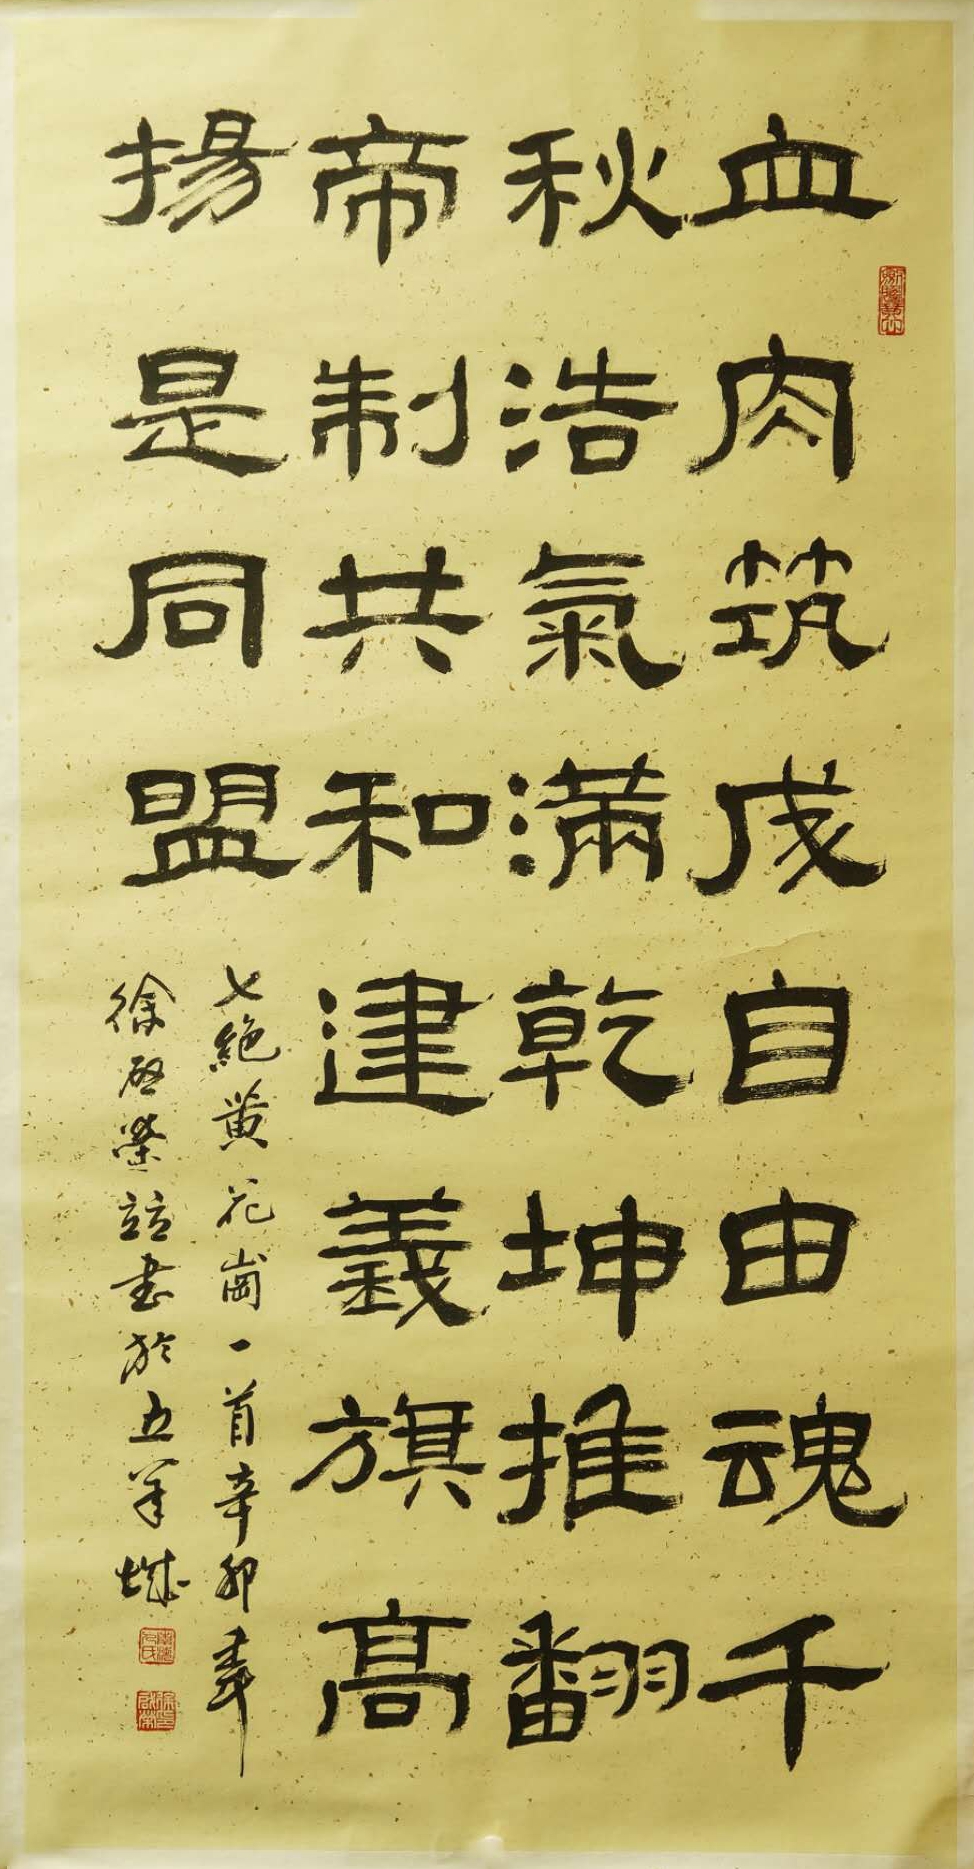 血肉筑成自由魂千
秋浩氣滿乾坤推翻
帝制共和建義旗高
揚是同盟
七絕黄花崗一首辛卯年
徐啓榮並書於五羊城